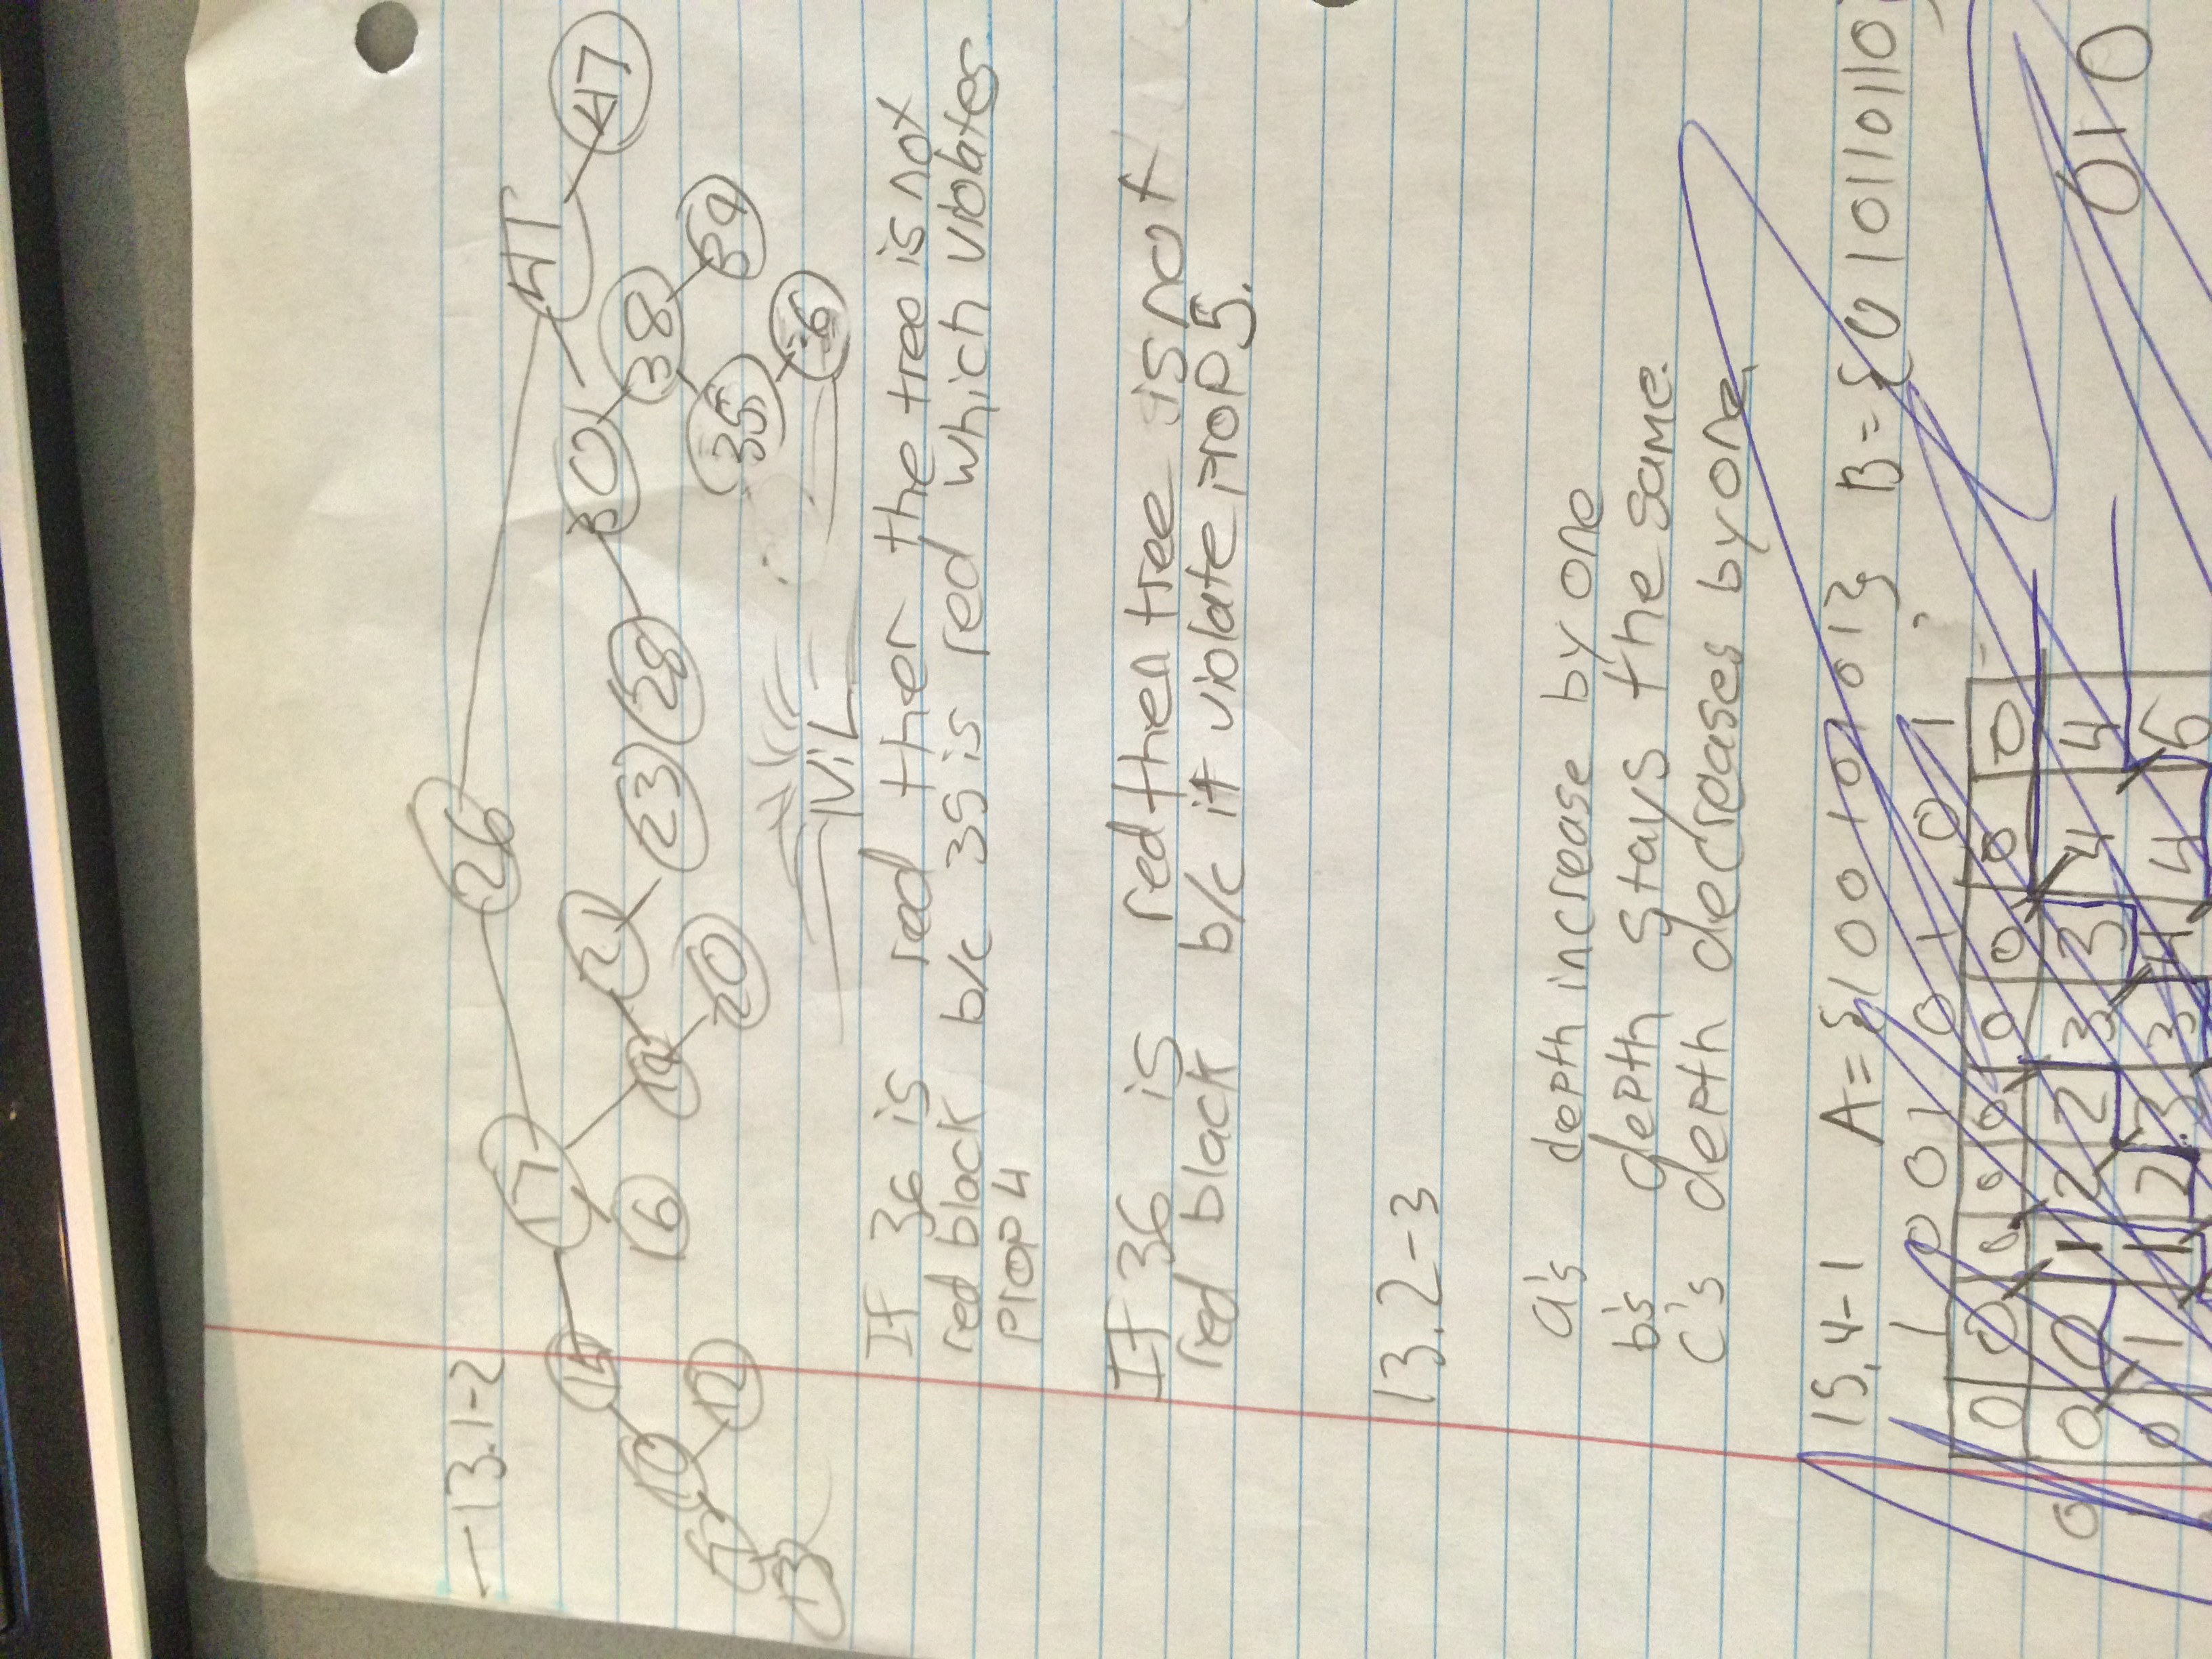 13.1-2
26
17 41
14 21 30 47
10 16 19 23 28 38
7 12 20 35 39
13 36
NiL
If 36 is red then the tree is not
red black b/c 35 is red which violates
prop 4
If 36 is red then tree is not
red black b/c it violate prop 5.
13.2-3
a's depth increase by one
b's depth stays the same.
c's depth decreases by one.
15.4-1 A={10010101} B={010110110}
1 0 0 1 0 1 0 1
0 0 0 0 0 0 0 0 0
0 0 0 1 2 2 3 3 4 4
0 1 1 2 3 3 4 4 5
010